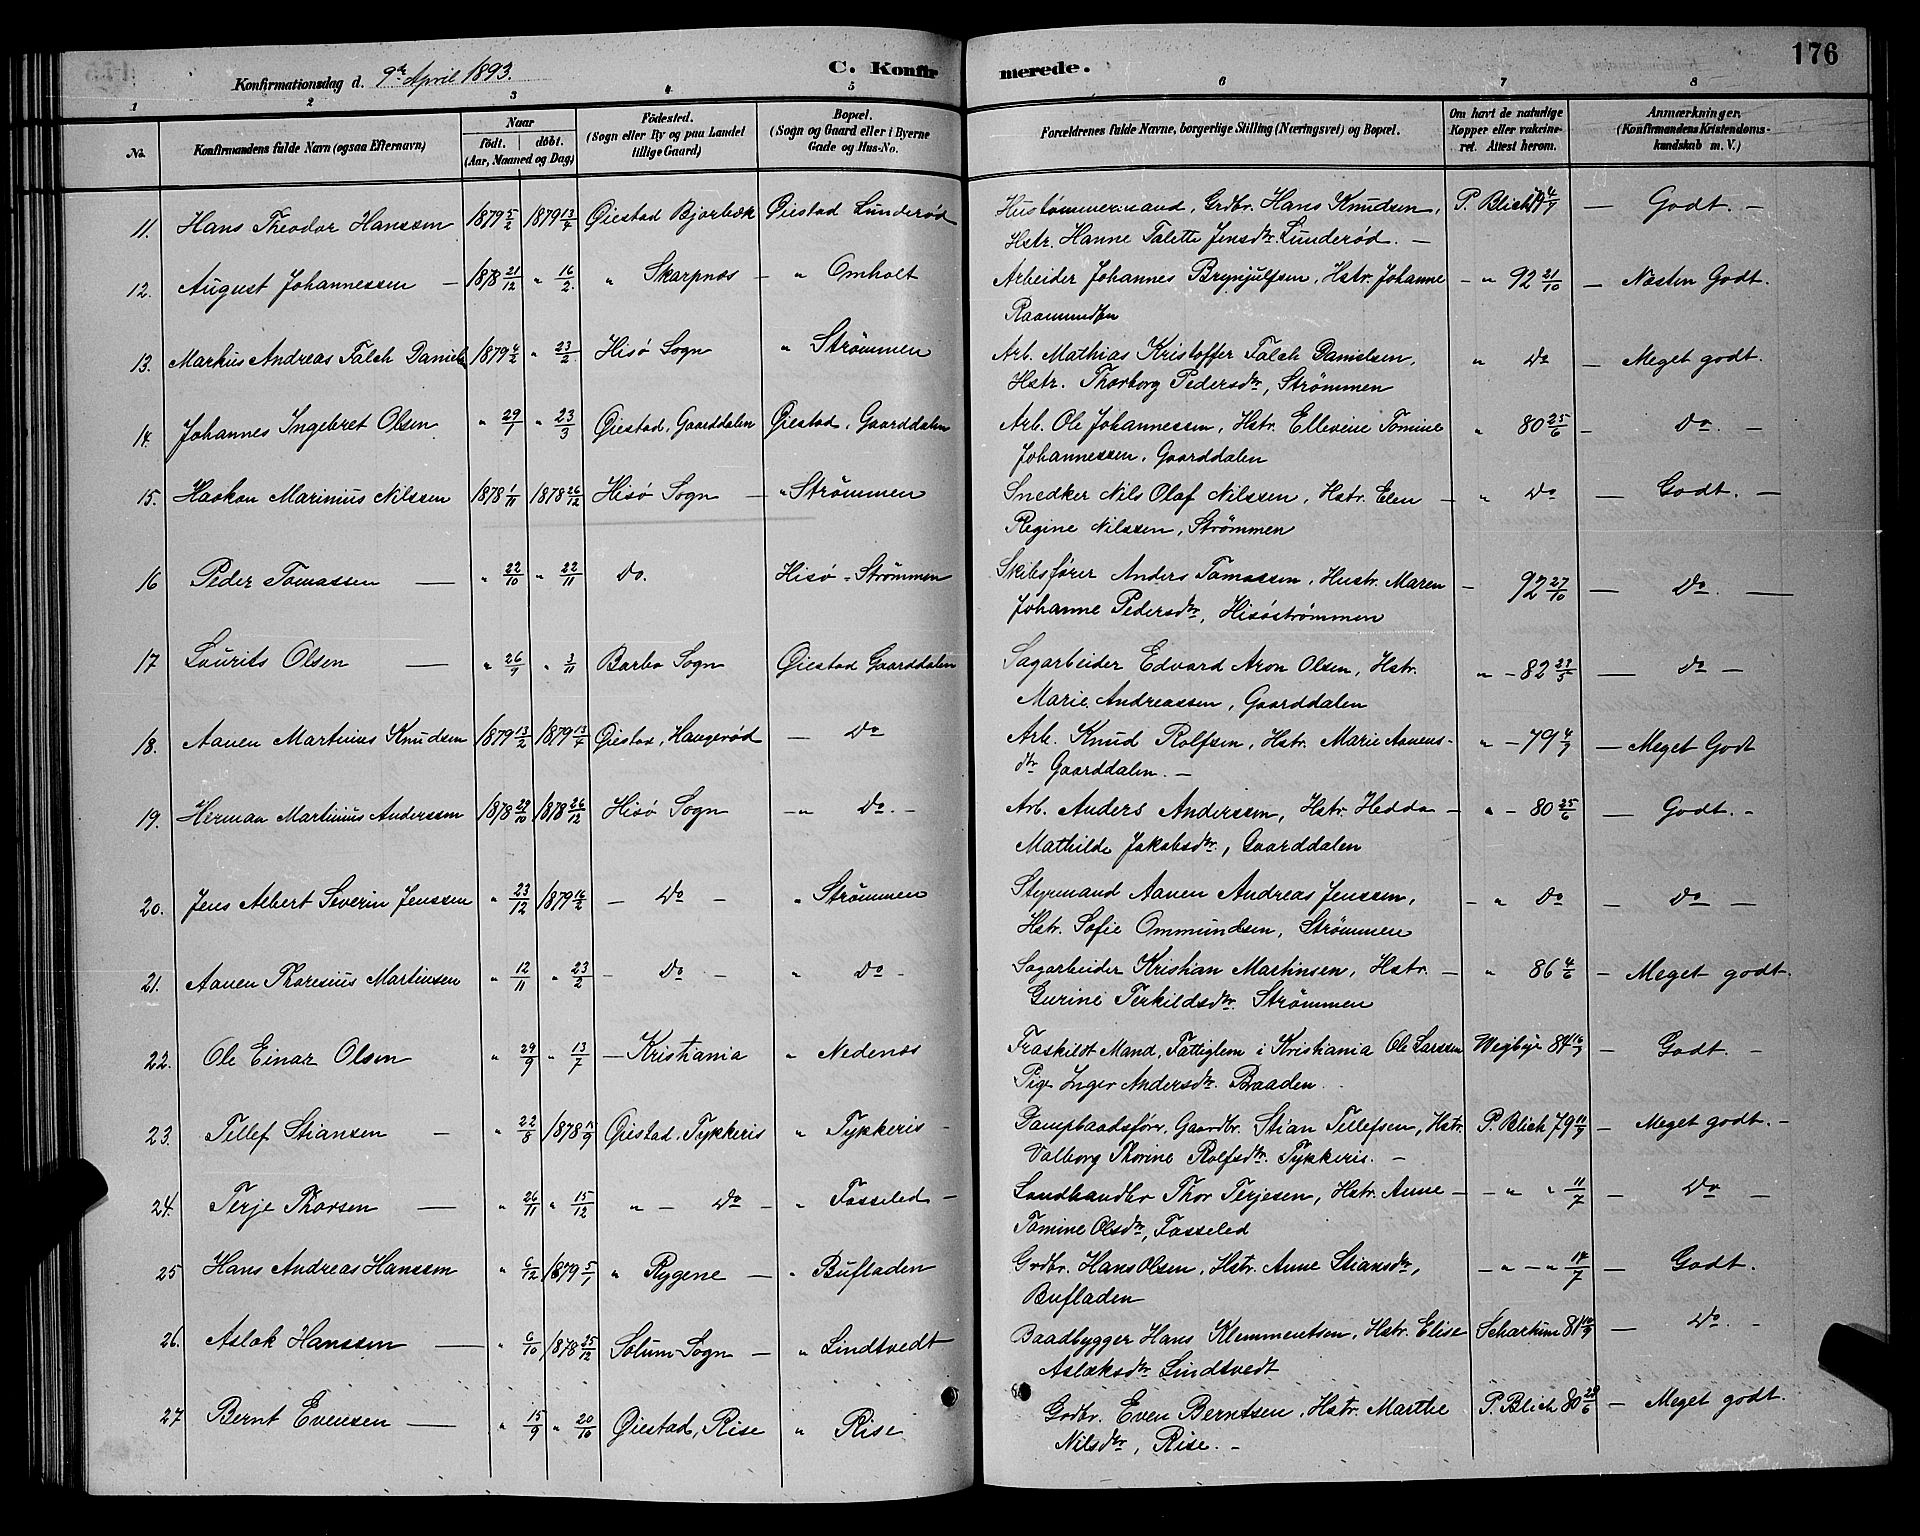 176
Konfirmationsdag d. 9de April 1893.
C. Konfirmerede.
1 2 3 4 5 6 7 8
No. Konfirmandens fulde Navn (ogsaa Efternavn) Naar födt. döbt. (Aar, Maaned og Dag) Födested. (Sogn eller By og paa Landet tillige Gaard) Bopæl. (Sogn og Gaard eller i Byerne Gade og Hus-No. Forældrenes fulde Navne, borgerlige Stilling (Næringsvei) og Bopæl. Om havt de naturlige Kopper eller vakcineret. Attest herom. Anmærkninger. (Konfirmandens Kristendomskundskab m. V.)
11. Hans Theodor Hanssen 1879 5/2 1879 13/4 Øiestad Bjorbæk Øiestad Lunderød Hustømmermand, Grdbr. Hans Knudsen, P. Blich 79 4/9 — Godt. —
Hstr. Hanne Talette Jensdtr. Lunderød. —
12. August Johannessen — 1878 21/12 " 16/2 " Skarpnæs — " Omholt Arbeider Johannes Brynjulfsen, Hstr. Johanne — " 92 21/10 — Næsten Godt.
Raamundsen
13. Markus Andreas Falch Daniels 1879 4/2 " 23/2 Hisø Sogn " Strømmen Arb. Mathias Kristoffer Falch Danielsen, " Do — Meget godt.
Hstr. Thorborg Pedersdtr, Strømmen
14. Johannes Ingebret Olsen " 29/1 " 23/3 Øiestad, Gaarddalen Øiestad, Gaarddalen Arb. Ole Johannessen, Hstr. Ellevine Tomine " 80 25/6 — Do. —
Johannessen, Gaarddalen
15. Haakon Marinius Nilssen 1878 1/11 1878 26/12 Hisø Sogn — " Strømmen Snedker Nils Olaf Nilssen, Hstr. Elen — " Do — Godt. —
Regine Nilssen, Strømmen
16 Peder Tomassen — " 22/10 " 22/11 Do. Hisø - Strømmen Skibsfører Anders Tomassen, Hustr. Maren — 92 27/10 — Do. —
Johanne Pedersdtr, Hisøstrømmen
17 Laurits Olsen — " 26/9 " 3/11 Barbo Sogn Øiestad Gaarddalen Sagarbeider Edvard Aron Olsen, Hstr. " — 82 23/5 — Do —
Marie Andreassen, Gaarddalen
18. Aanen Martinius Knudsen 1879 13/2 1879 13/4 Øiestad, Haugerød — Do Arb. Knud Rolfsen, Hstr. Marie Aanens- " — 79 4/9 — Meget Godt
dtr Gaarddalen. —
19. Herman Martinius Anderssen 1878 29/10 1878 26/12 Hisø Sogn — " Do. — Arb. Anders Anderssen, Hstr. Hedda — " — 80 25/6 — Godt. —
Mathilde Jakobsdtr., Gaarddalen
20. Jens Albert Severin Jenssen " 23/12 1879 16/2 — Do — " Strømmen Styrmand Aanen Andreas Jenssen, — " Do — Do —
Hstr. Sofie Ommundsen, Strømmen
21. Aanen Thoresius Martinsen " 12/11 " 23/2 — Do — " Do — Sagarbeider Kristian Martinsen, Hstr. — " 86 4/6 — Meget godt.
Gurine Terkildsdtr. Strømmen
22. Ole Einar Olsen " 29/9 " 13/7 — Kristiania " Nedenæs Fraskildt Mand, Fattiglem i Kristiania Ole Larssen 84 16/9 — Godt. —
Pige Inger Andersdtr. Braaden
23. Tellef Stiansen — " 22/8 1878 /9 Øiestad, Tykkeris " Tykkeris — Dampbaadsfører, Gaardbr. Stian Tellefsen, Hstr. P. Blich 79 11/9 — Meget godt. —
Valborg Thorine Rolfsdtr. Tykkeris. —
24. Terje Thorsen — " 26/11 " 15/12 " — Do — " Fosseled — Landhandler Thor Terjesen, Hstr. Anne — — " " 11/7 — Do —
Tomine Olsdtr, Fosseled
25 Hans Andreas Hanssen " 6/12 1879 5/1 " Rygene — " Bufladen Grdbr. Hans Olsen, Hstr. Anne Stiansdtr, — " — " 14/7 — Godt.
Bufladen
26. Aslak Hanssen — " 6/10 1878 25/12 Solum Sogn — " Lindtvedt Baadbygger Hans Klemmentsen, Hstr. Elise Schartum 81 — Do. —
Aslaksdtr Lindtvedt
27 Bernt Evensen — " 15/9 " 20/10 Øiestad, Rise " Rise Grdbr. Even Berntsen, Hstr. Marthe P. Blich 80 28/6 — Meget godt
Nilsdtr, Rise. —